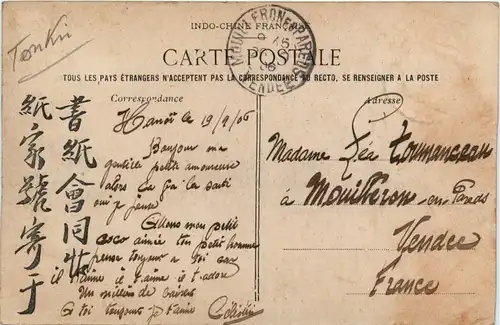 INDO-CHINE FRANÇAISE
Tonkin
CARTE POSTALE
TOUS LES PAYS ÉTRANGERS N'ACCEPTENT PAS LA CORRESPONDANCE AU RECTO, SE RENSEIGNER A LA POSTE
VENDÉE
Correspondance
Adresse
書紙會同
紙家號寄于
Hanoï le 19/9/06
Bonjour ma
gentille petite amoureuse
alors ça va la santé
oui je pense
Allons mon petit
coco aimée ton petit homme
pense toujour a toi car
il t'aime il t'aime il t'adore
Un million de baisers
a toi toujours je t'aime
Célestin
Madame Léa
à Mouilleron-en-Pareds
Vendée
France